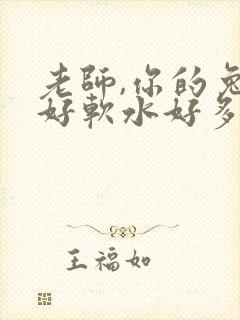 老師,你的兔
好軟水好多
王福如